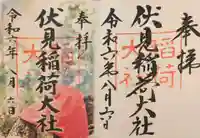 奉拝
伏見稲荷大社
令和六年八月六日
奉拝
伏見稲荷大社
令和六年八月六日
稲荷
大